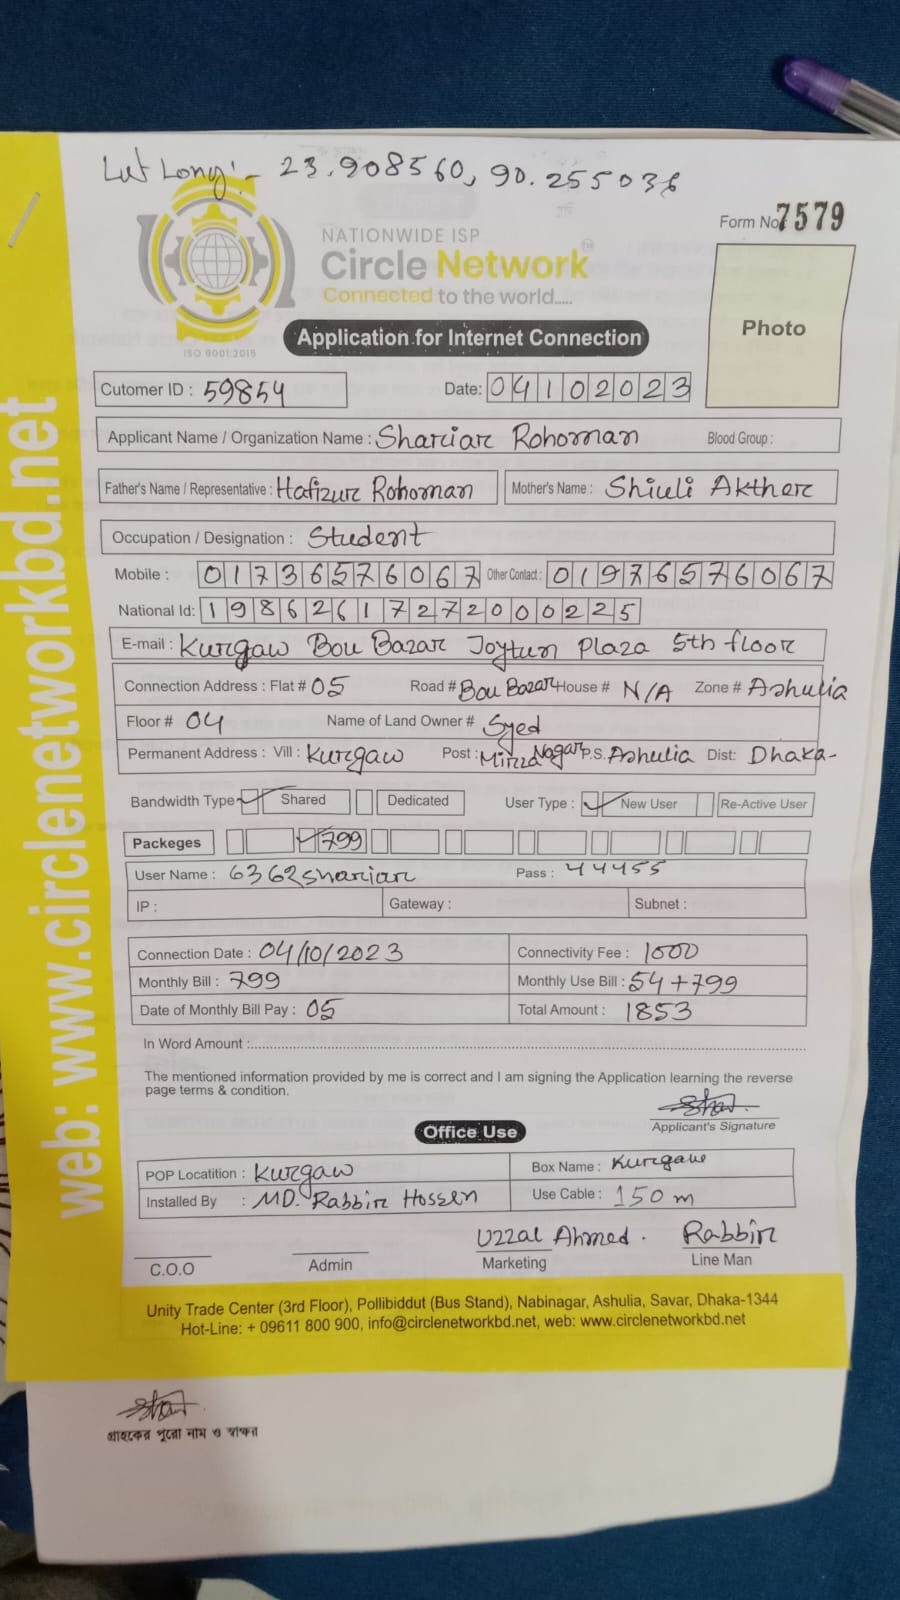 Lat Long:- 23.908560, 90.255036
Form No 7579
NATIONWIDE ISP
Circle Network
Connected to the world.....
ISO 9001:2015
Application for Internet Connection
Photo
Cutomer ID : 59854 Date: 04102023
Applicant Name / Organization Name : Shariar Rohoman Blood Group :
Father's Name / Representative : Hafizur Rohoman Mother's Name : Shiuli Akther
Occupation / Designation : Student
Mobile : 01736576067 Other Contact : 01976576067
National Id: 19862617272000225
E-mail : Kurgaw Bou Bazar Joytun Plaza 5th floor
Connection Address : Flat # 05 Road # Bou Bazar House # N/A Zone # Ashulia
Floor # 04 Name of Land Owner # Syed
Permanent Address : Vill : Kurgaw Post : Mirza Nagar P.S. Ashulia Dist: Dhaka-
Bandwidth Type Shared Dedicated User Type : New User Re-Active User
Packeges 799
User Name : 6362shariar Pass : 44455
IP : Gateway : Subnet :
Connection Date : 04/10/2023 Connectivity Fee : 1000
Monthly Bill : 799 Monthly Use Bill : 54+799
Date of Monthly Bill Pay : 05 Total Amount : 1853
In Word Amount :
The mentioned information provided by me is correct and I am signing the Application learning the reverse
page terms & condition.
Applicant's Signature
Office Use
POP Locatition : Kurgaw Box Name : Kurgaw
Installed By : MD. Rabbir Hossen Use Cable : 150 m
Uzzal Ahmed. Rabbir
C.O.O Admin Marketing Line Man
Unity Trade Center (3rd Floor), Pollibiddut (Bus Stand), Nabinagar, Ashulia, Savar, Dhaka-1344
Hot-Line: + 09611 800 900, info@circlenetworkbd.net, web: www.circlenetworkbd.net
গ্রাহকের পুরো নাম ও স্বাক্ষর
web: www.circlenetworkbd.net